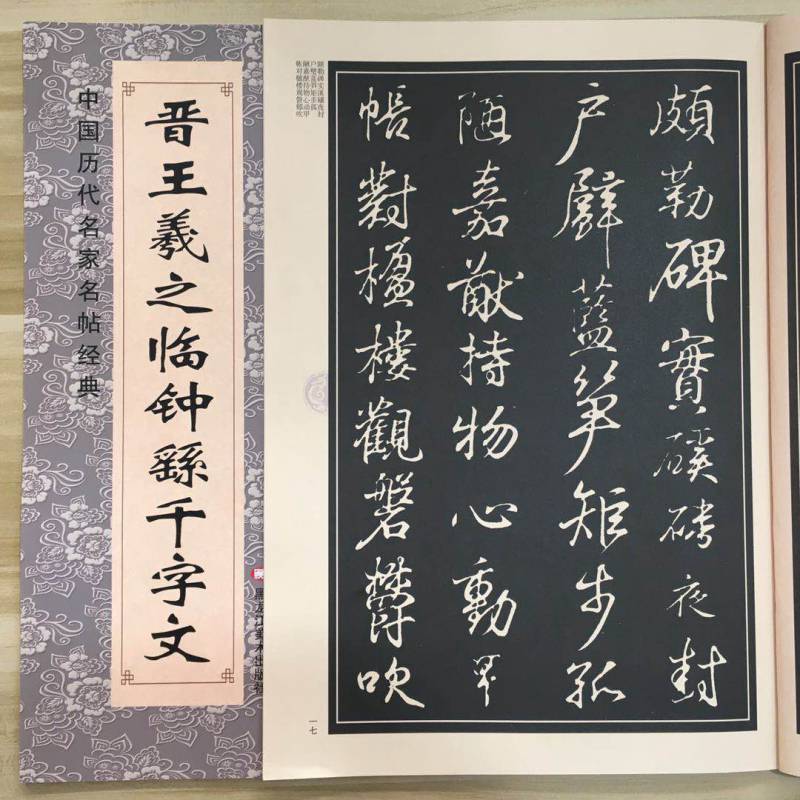 中国历代名家名帖经典
晋王羲之临钟繇千字文
黑龙江美术出版社
頗勒碑實磎磻夜封
户壁藍筍矩步孤
陋嘉猷持物心動甲
帳對楹樓觀磐鬱吹
一七